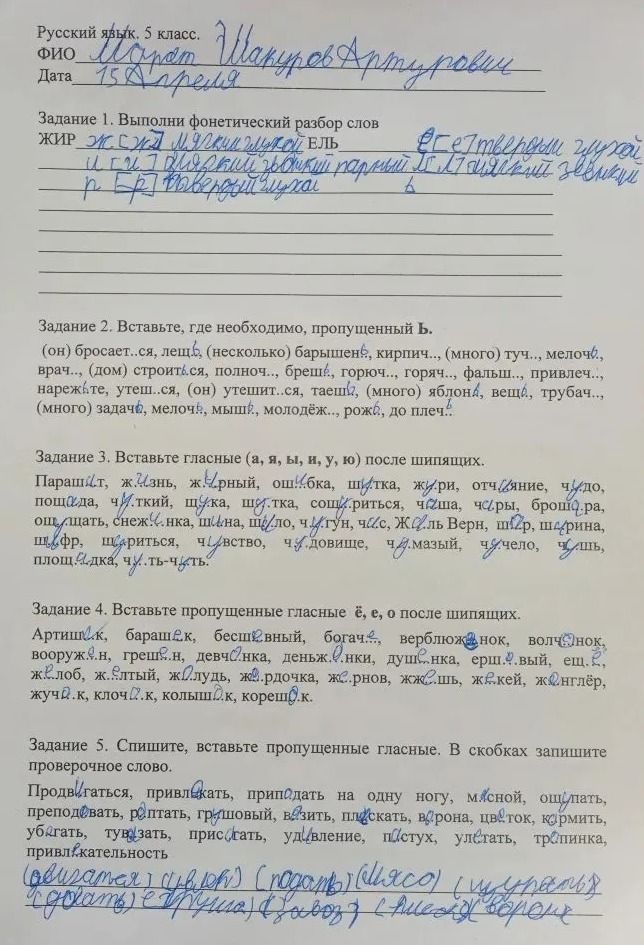 Русский язык. 5 класс.
ФИО Марат Шакуров Артурович
Дата 15 Апреля
Задание 1. Выполни фонетический разбор слов
ЖИР ж [ж] мягкий глухой ЕЛЬ е [е] твердый глухой
и [и] мягкий звонкий парный Л [л] мягкий звонкий
р [р] твердый глухой ь
Задание 2. Вставьте, где необходимо, пропущенный Ь.
(он) бросает..ся, лещь, (несколько) барышень, кирпич.., (много) туч.., мелочь.,
врач.., (дом) строиться, полноч.., брешь, горюч.., горяч.., фальш.., привлеч..,
нарежьте, утеш..ся, (он) утешит..ся, таешь, (много) яблонь, вещь, трубач..,
(много) задачь, мелочь, мышь, молодёж.., рожь, до плечь.
Задание 3. Вставьте гласные (а, я, ы, и, у, ю) после шипящих.
Парашют, жизнь, жирный, ошибка, шутка, жури, отчаяние, чудо,
пощада, чуткий, щука, шутка, сощуриться, чаша, чары, брошюра,
ощущать, снежинка, шина, шило, чугун, час, Жаль Верн, шар, ширина,
шифр, щуриться, чувство, чудовище, чумазый, чучело, чушь,
площадка, чуть-чуть.
Задание 4. Вставьте пропущенные гласные ё, е, о после шипящих.
Артишок, барашек, бесшевный, богаче, верблюжонок, волчонок,
вооружен, грешен, девчонка, деньжонки, душенка, ершевый, еще,
желоб, желтый, жолудь, жердочка, жернов, жжешь, жокей, жонглёр,
жучок, клочок, колышок, корешок.
Задание 5. Спишите, вставьте пропущенные гласные. В скобках запишите
проверочное слово.
Продвигаться, привлекать, припадать на одну ногу, мясной, ощупать,
преподовать, роптать, грушовый, вязить, плескать, ворона, цветок, кормить,
убегать, тувязать, присягать, удивление, пастух, улетать, тропинка,
привлекательность
(двигатся) (влёк) (подать) (мясо) (щупать)
(довать) (груша) (завоз) (плеск) (вороне